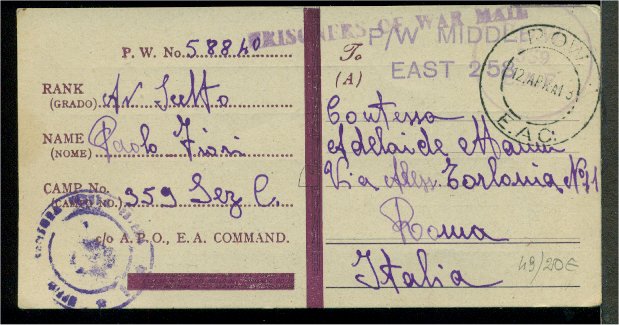 PRISONERS OF WAR MAIL
P/W MIDDLE
EAST 258
P. W. No. 58840
RANK
(GRADO)
NAME
(NOME) Paolo Fiori
CAMP No.
(CAMPO NO.) 359 Sez C.
c/o A.P.O., E.A. COMMAND.
P.O.W.
12 APR 43
E.A.C.
To
(A)
Contessa
Adelaide
Via Torlonia No 71
Roma
Italia
49/20€